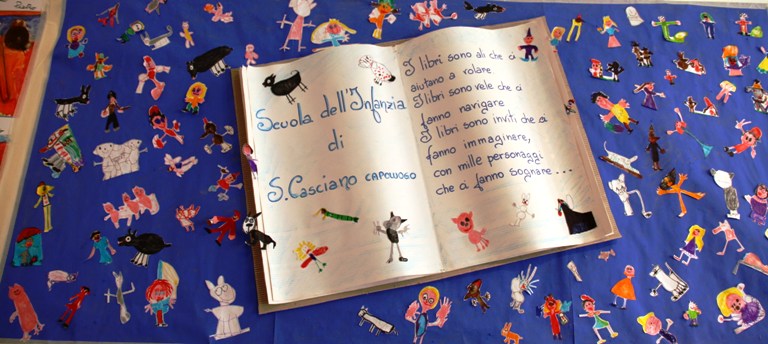 Scuola dell'Infanzia
di
S. Casciano CAPOLUOGO
I libri sono ali che ci
aiutano a volare
I libri sono vele che ci
fanno navigare
I libri sono inviti che ci
fanno immaginare,
con mille personaggi
che ci fanno sognare...